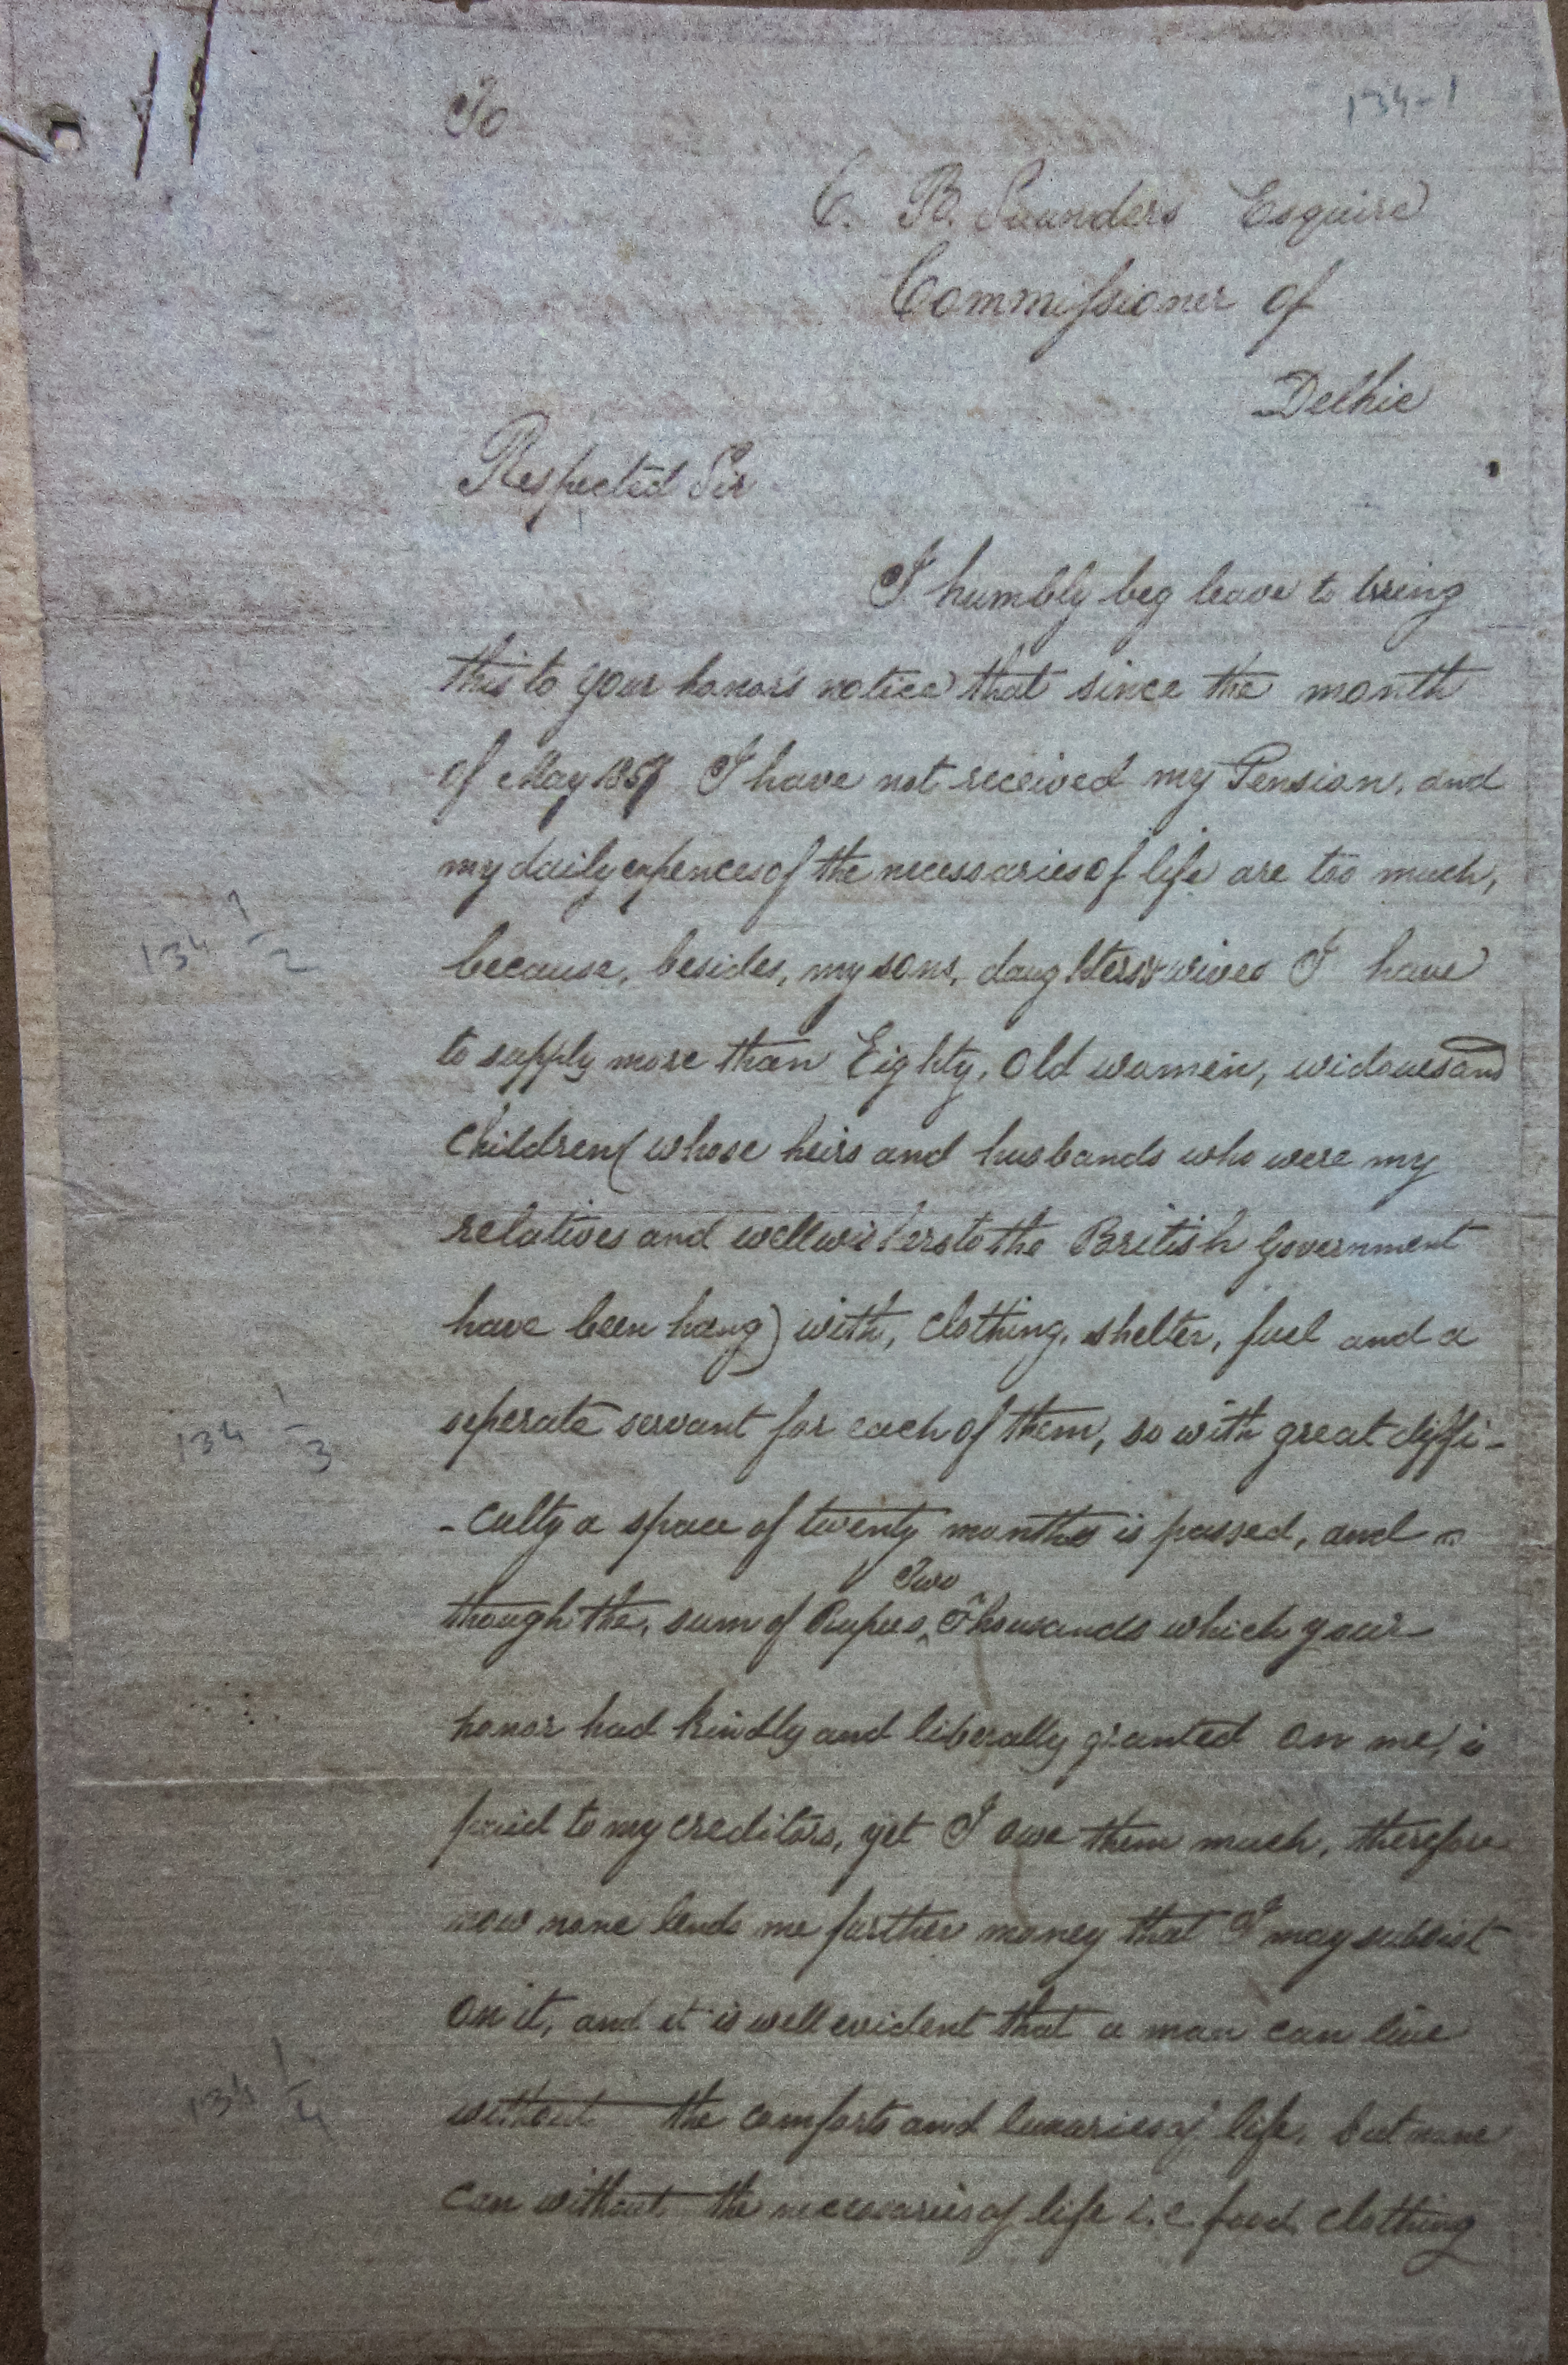 134-1
To
C. B. Saunders Esquire
Commissioner of
Delhie
Respected Sir
I humbly beg leave to bring
this to your honors notice that since the month
of May 1857 I have not received my Pension, and
my daily expences of the necessaries of life are too much,
134 1/2
because, besides, my sons, daughters & wives I have
to supply more than Eighty, Old women, widowes and
Children (whose heirs and husbands who were my
relatives and wellwishers to the British Government
have been hang) with, Clothing, shelter, fuel and a
134 1/3
seperate servant for each of them, so with great diffi-
-culty a space of twenty months is passed, and
though the, sum of Rupees Two Thousands which your
honor had kindly and liberally granted on me, is
paid to my creditors, yet I owe them much, therefore
now none lends me further money that I may subsist
on it, and it is well evident that a man can live
134 1/4
without the comforts and luxuries of life, but none
can without the necessaries of life i.e. food, clothing